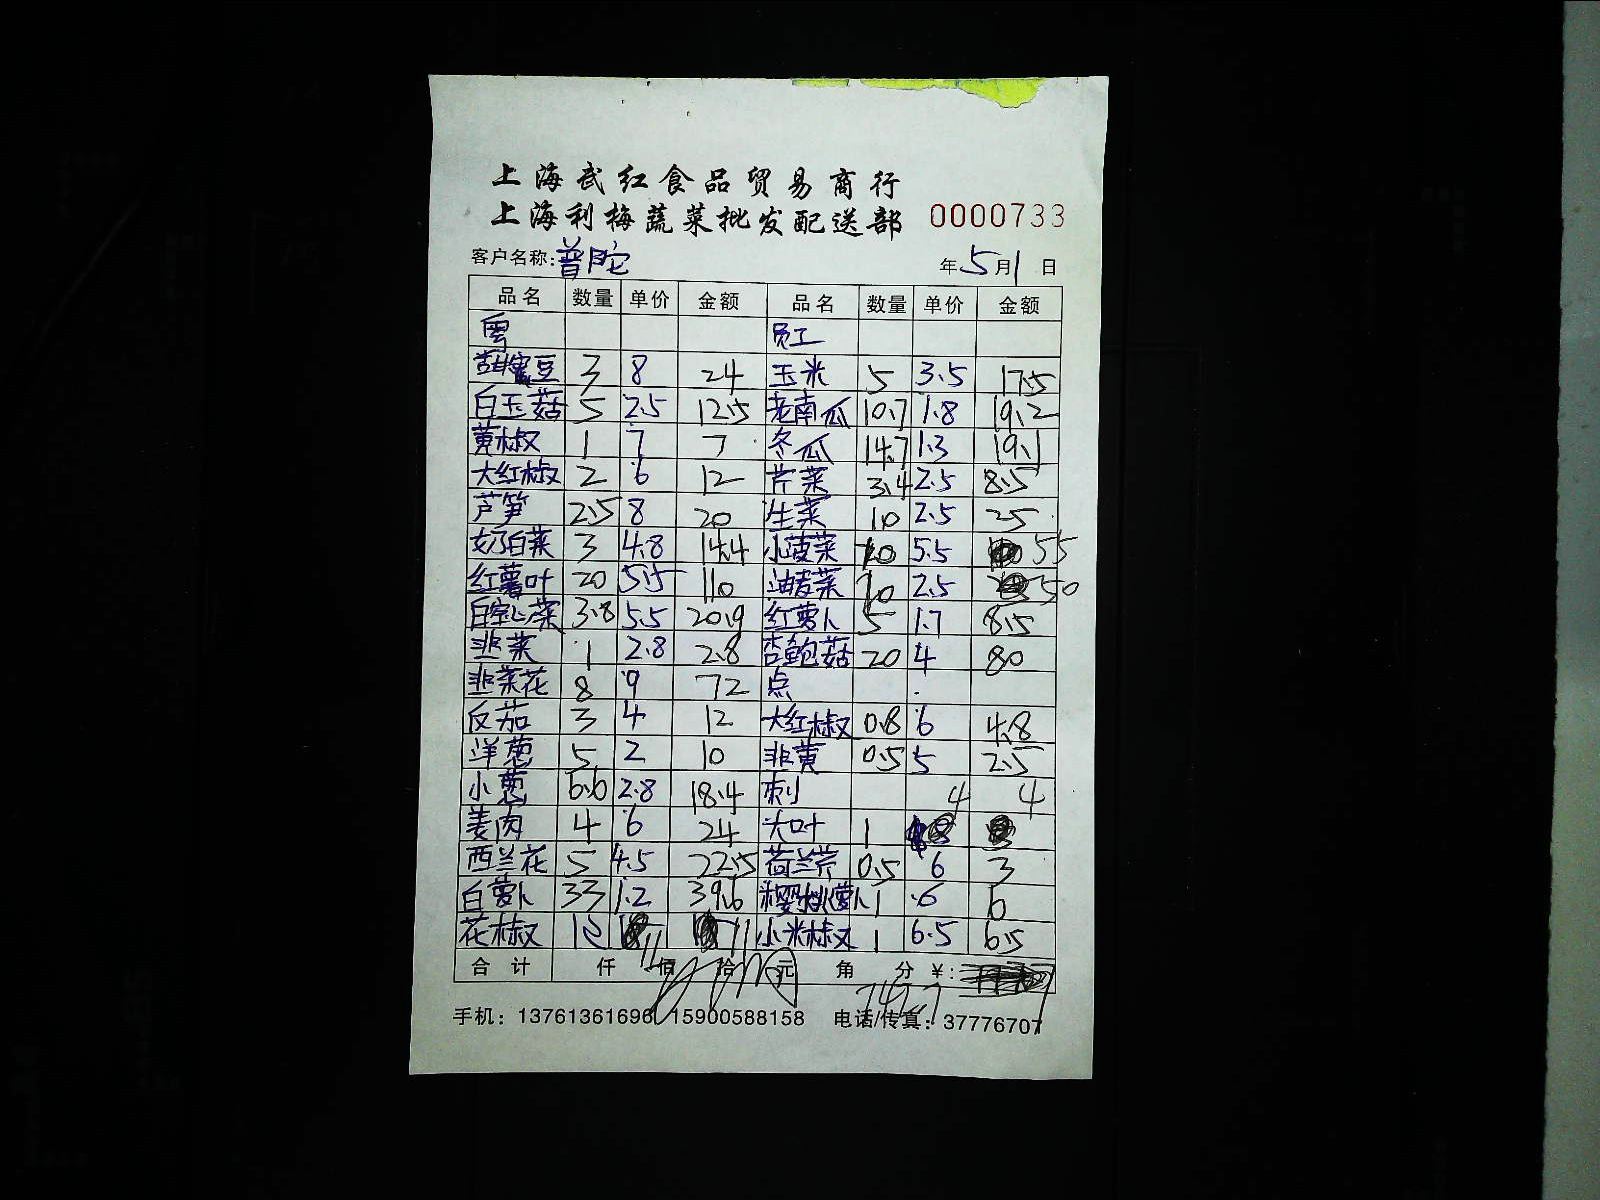 上海武红食品贸易商行
上海利梅蔬菜批发配送部 0000733
客户名称: 普陀 年 5 月 1 日
品名 数量 单价 金额 品名 数量 单价 金额
粤 员工
甜蜜豆 3 8 24 玉米 5 3.5 17.5
白玉菇 5 2.5 12.5 老南瓜 10.7 1.8 19.2
黄椒 1 7 7 冬瓜 14.7 1.3 19.1
大红椒 2 6 12 芹菜 3.4 2.5 8.5
芦笋 2.5 8 20 生菜 10 2.5 25
奶白菜 3 4.8 14.4 小菠菜 10 5.5 55
红薯叶 20 5.5 110 油麦菜 2.5 50
白空心菜 3.8 5.5 20.9 红萝卜 5 1.7 8.5
韭菜 1 2.8 2.8 杏鲍菇 20 4 80
韭菜花 8 9 72 点
反茄 3 4 12 大红椒 0.8 6 4.8
洋葱 5 2 10 韭黄 0.5 5 2.5
小葱 6.6 2.8 18.4 刺 4 4
姜肉 4 6 24 大叶 1
西兰花 5 4.5 22.5 荷兰芹 0.5 6 3
白萝卜 33 1.2 39.6 樱桃萝卜 1 6 6
花椒 11 11 小米椒 1 6.5 6.5
合计 仟 佰 拾 元 角 分 ¥:
747.7
手机: 13761361696 15900588158 电话/传真: 37776707